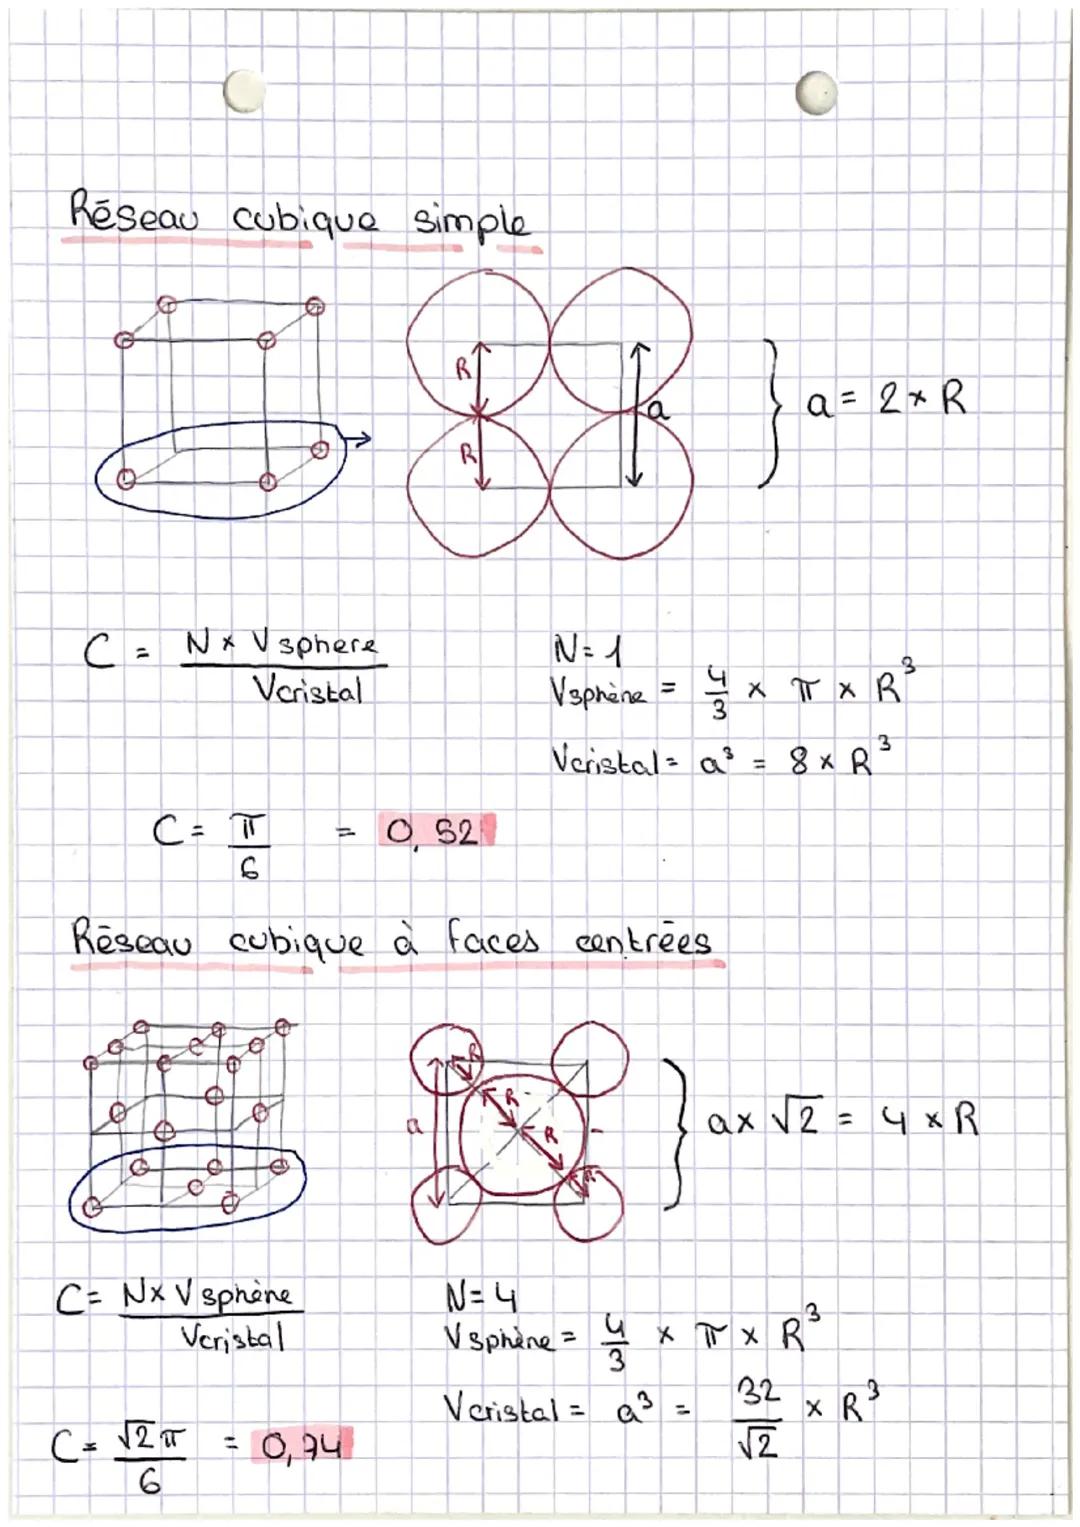 Réseau cubique simple
R
R
a
a = 2 × R
C = N × Vsphere / Vcristal
N = 1
Vsphène = 4/3 × π × R³
Vcristal = a³ = 8 × R³
C = π/6 = 0,52
Réseau cubique à faces centrées
a
R
R
R
R
a × √2 = 4 × R
C = N × Vsphène / Vcristal
N = 4
Vsphène = 4/3 × π × R³
Vcristal = a³ = 32/√2 × R³
C = √2 π / 6 = 0,74